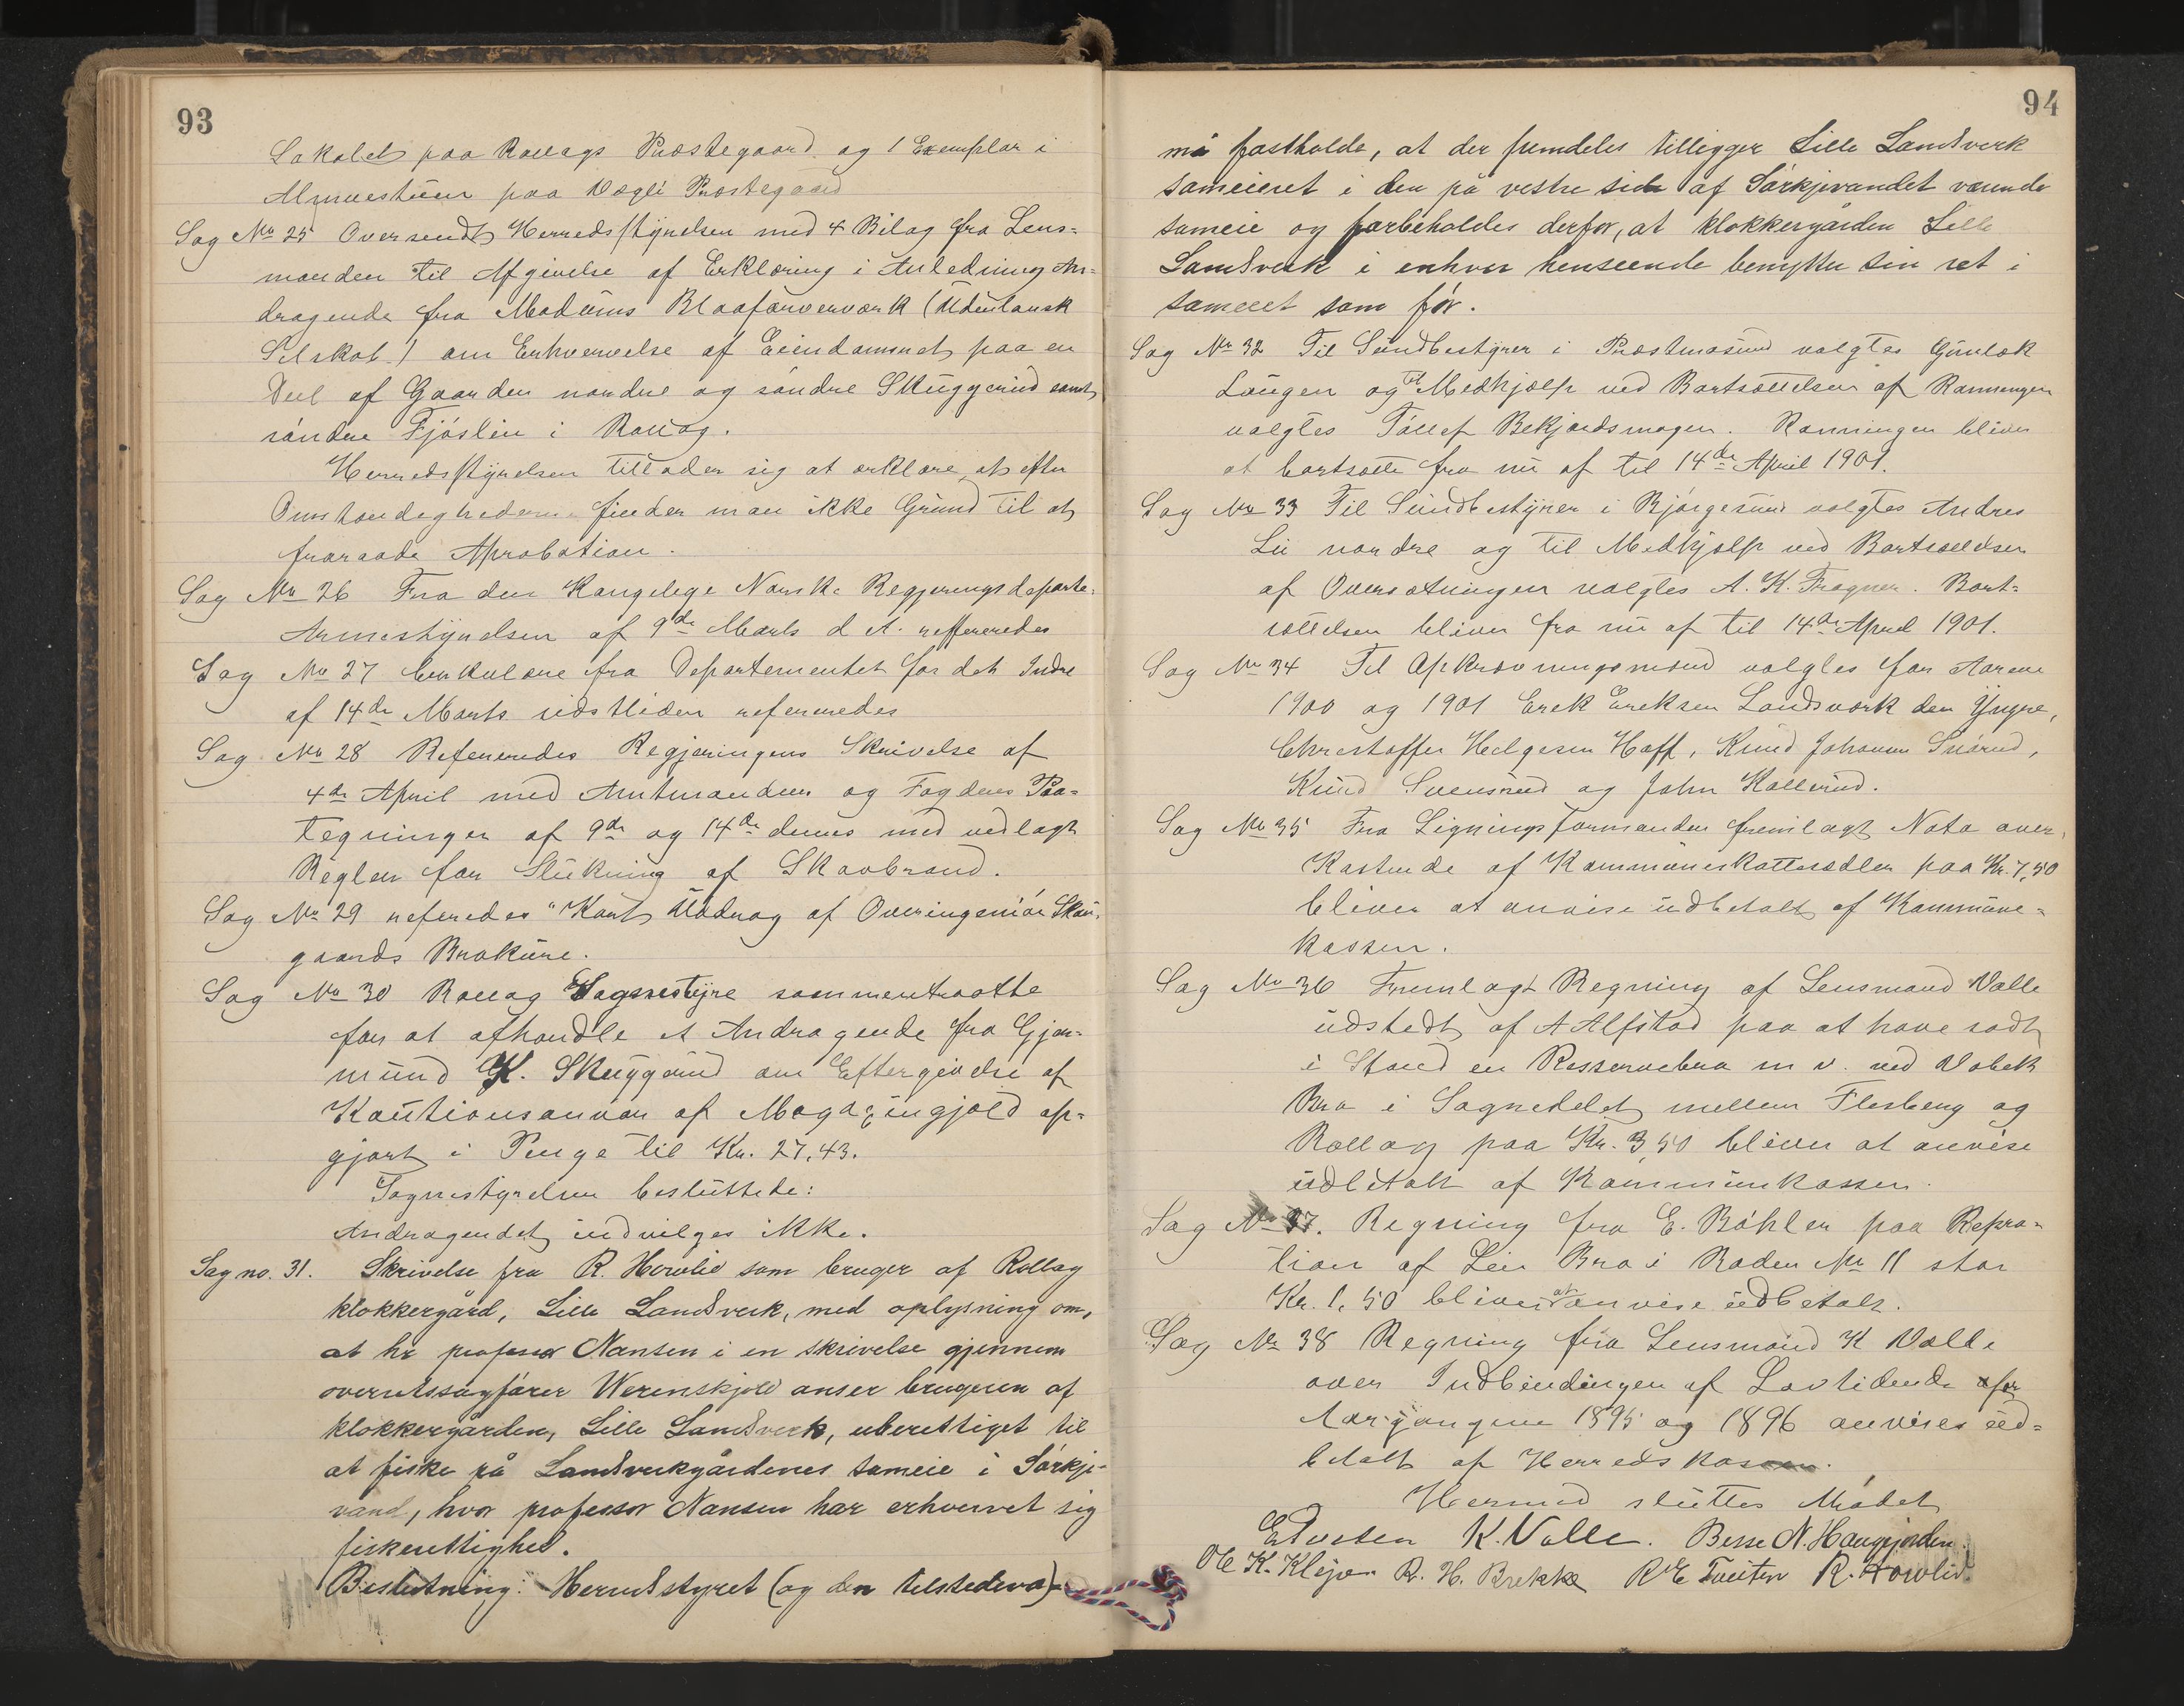 93
Lokalet paa Rollags Præstegaard og 1 Exemplar i
Almuestuen paa Vægli Præstegaard
Sag No 25 Oversendt Herredsstyrelsen med 4 Bilag fra Lens-
manden til Afgivelse af Erklæring i Anledning An-
dragende fra Modums Blaafarveværk (Udenlansk
Selskab) om Erhvervelse af Eiendomsret paa en
Deel af Gaarden nordre og søndre Skuggerud samt
søndre Fjøslien i Rollag.
Herredsstyrelsen tillader sig at erklære at efter
Omstændighederne finder man ikke Grund til at
fraraade Aprobation.
Sag No 26 Fra den Kongelege Norske Regjerings departe-
Armestyrelsen af 9de Marts d A. reffereredes
Sag No 27 Cirkulære fra Departementet for det Indre
af 14de Marts sidstleden refereredes
Sag No 28 Refereredes Regjeringens Skrivelse af
4de April med Amtmandens og Fogdens Paa-
tegninger af 9de og 14de dennes med vedlagt
Regler for Slukning af Skovbrand.
Sag No 29 referedes "Kort Uddrag af Overingeniør Skou-
gaards Brokure.
Sag No 30 Rollag Sognestyre sammentraatte
for at afhandle et Andragende fra Gjer-
mund K. Skuggerud om Eftergivelse af
Kautionsanvar af Magazingjæld op-
gjort i Penge til Kr. 27,43.
Sognestyrelsen besluttede:
Andragendet indvilges ikke.
Sag no. 31. Skrivelse fra R. Howlid som bruger af Rollag
klokkergård, Lille Landsverk, med oplysning om,
at hr professor Nansen i en skrivelse gjennem
overretssagfører Werenskjold anser brugeren af
klokkergården, Lille Landsverk, uberettiget til
at fiske på Landsverkgårdenes sameie i Sørkje-
vand, hvor professor Nansen har erhvervet sig
fiskerettighed.
Beslutning: Herredsstyret (og den tilstedevæ)
94
må fastholde, at der fremdeles tilligger Lille Landsverk
sameieret i den på vestre side af Sørkjevandet værende
sameie og forbeholdes derfor, at klokkergården Lille
Landsverk i enhver henseende benytter sin ret i
sameiet som før.
Sag No 32 Til Sundbestyrer i Præstmosund valgtes Gunlæk
Laugen og til Medhjælp ved Bortsættelsen af Ramningen
valgtes Tollef Bekjordsmogen. Ramningen bliver
at bortsætte fra nu af til 14de April 1901.
Sag No 33 Til Sundbestyrer i Bjørgesund valgtes Andres
Lii nordre og til Medhjælp ved Bortsættelsen
af Oversætningen valgtes A. K. Fragner. Bort-
sættelsen bliver fra nu af til 14de April 1901.
Sag No 34 Til Opkrævningsmænd valgtes for Aarene
1900 og 1901 Erek Ereksen Landsværk den Yngre,
Christoffer Helgesen Hoff, Knud Johansen Snørud,
Knud Svensrud og John Kallerud.
Sag No 35 Fra Ligningsformanden fremlagt Nota over
Kostende af Kommuneskattesedler paa Kr. 7,50
bliver at anvise udbetalt af Kommune-
kassen.
Sag No 36 Fremlagt Regning af Lensmand Valle
udstedt af A Alfstad paa at have sadt
i Stand en Resservebro m v. ved Vobek
Bro i Sognedelet mellem Flesberg og
Rollag paa Kr. 3,50 bliver at anvise
udbetalt af Kommunkassen.
Sag No 37. Regning fra E. Bøhler paa Repra-
tion af Lien Bro i Roden No 11 stor
Kr. 1,50 bliver at anvise udbetalt.
Sag No 38 Regning fra Lensmand K Valle
over Indbindingen af Lovtidende for
Aargangene 1895 og 1896 anvises ud-
betalt af Herredskassen.
Hermed sluttes Mødet
Edvsten K. Valle. Besse N. Haugjorden.
Ole K. Klejve. R. H. Brekke R E Tveiten R. Howlid.